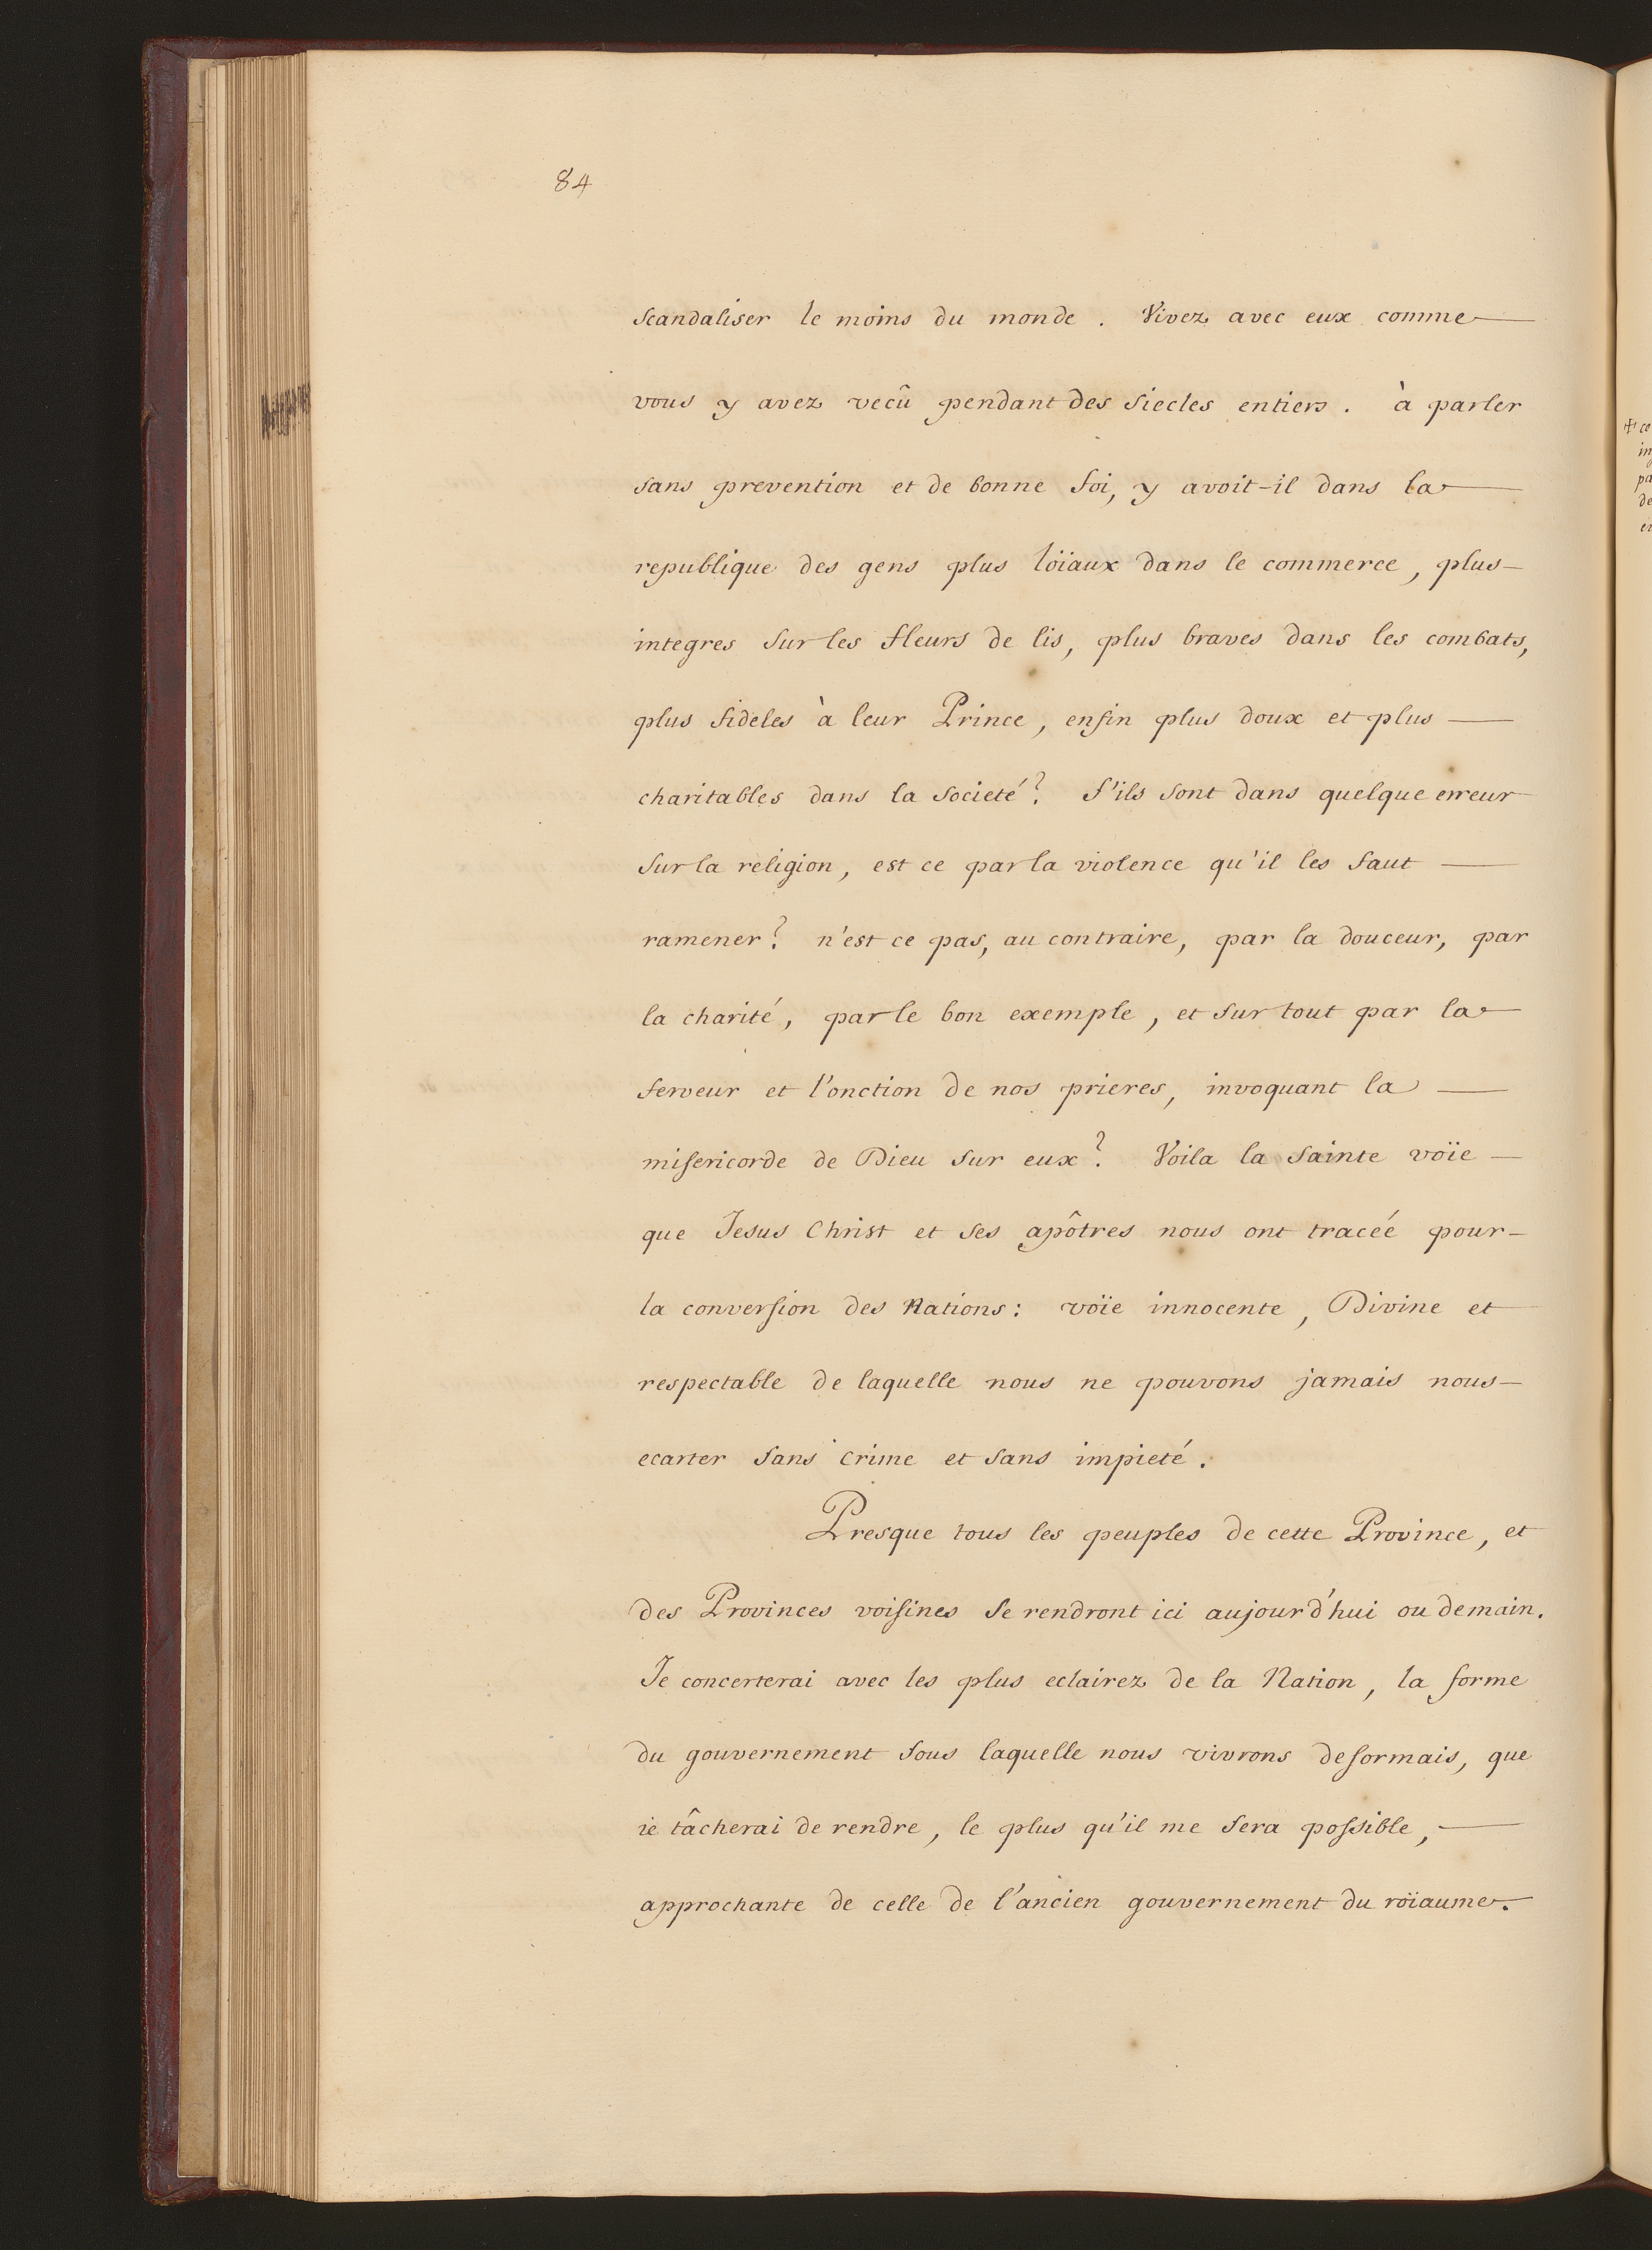 84
scandaliser le moins du monde. Vivez avec eux comme
vous y avez vecû pendant des siecles entiers. à parler
sans prevention et de bonne foi, y avoit-il dans la
republique des gens plus loïaux dans le commerce, plus
integres sur les fleurs de lis, plus braves dans les combats,
plus fideles à leur Prince, enfin plus doux et plus
charitables dans la societé? s'ils sont dans quelque erreur
sur la religion, est ce par la violence qu'il les faut
ramener? n'est ce pas, au contraire, par la douceur, par
la charité, par le bon exemple, et sur tout par la
ferveur et l'onction de nos prieres, invoquant la
misericorde de Dieu sur eux? Voila la sainte voïe
que Jesus Christ et ses apôtres nous ont tracéé pour
la conversion des Nations: voïe innocente, Divine et
respectable de laquelle nous ne pouvons jamais nous
ecarter sans crime et sans impieté.
Presque tous les peuples de cette Province, et
des Provinces voisines se rendront ici aujourd'hui ou demain.
Je concerterai avec les plus eclairez de la Nation, la forme
du gouvernement sous laquelle nous vivrons desormais, que
ie tâcherai de rendre, le plus qu'il me sera possible,
approchante de celle de l'ancien gouvernement du roïaume.